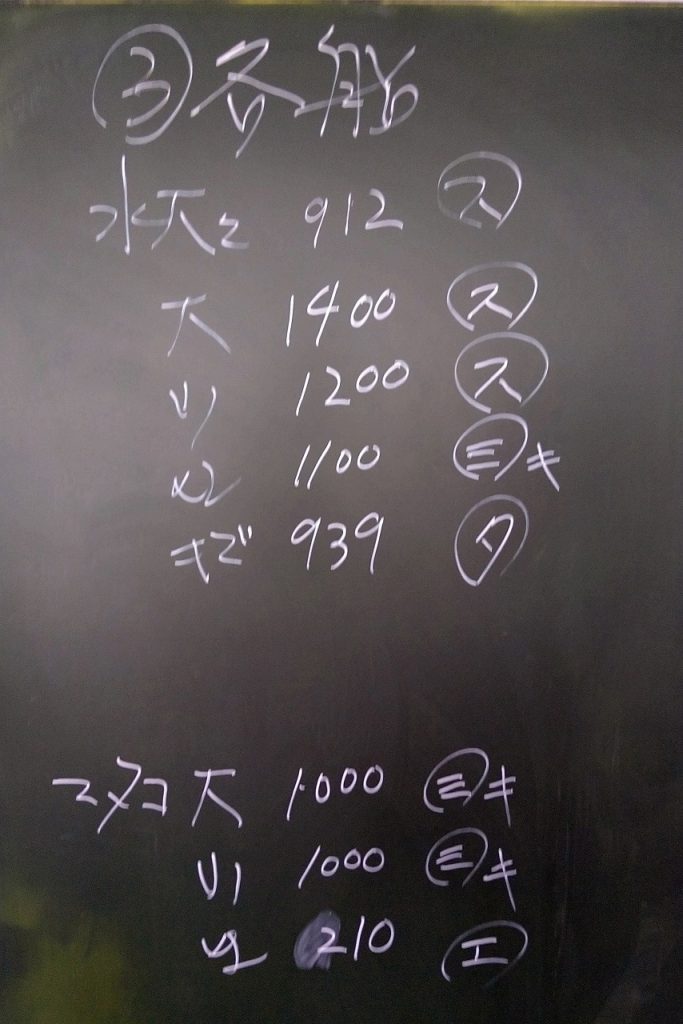 ③各船
水大2 912 ス
大 1400 ス
小 1200 ス
1100 ミキ
キズ 939 タ
マダコ 大 1000 ミキ
小 1000 ミキ
210 エ